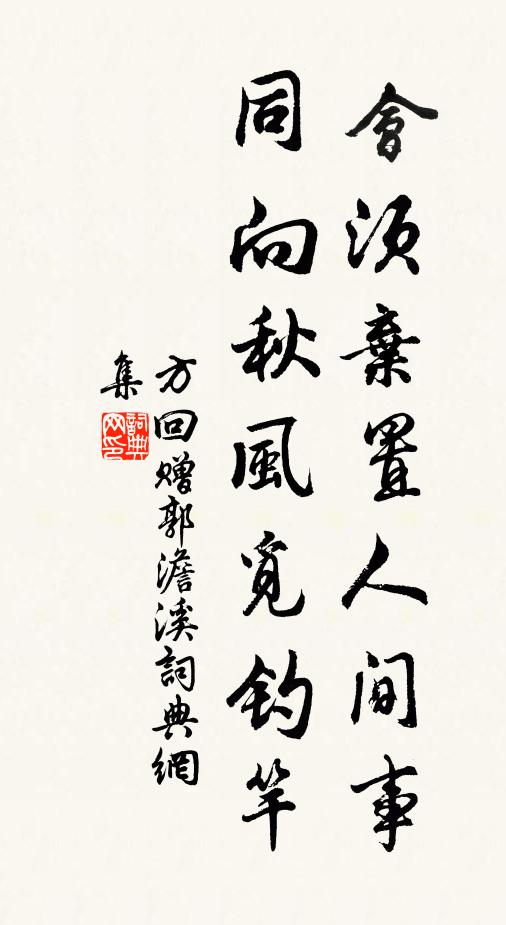 會須棄置人間事
同向秋風覓釣竿
方回贈郭澹溪詞典網
集
詞典
网印